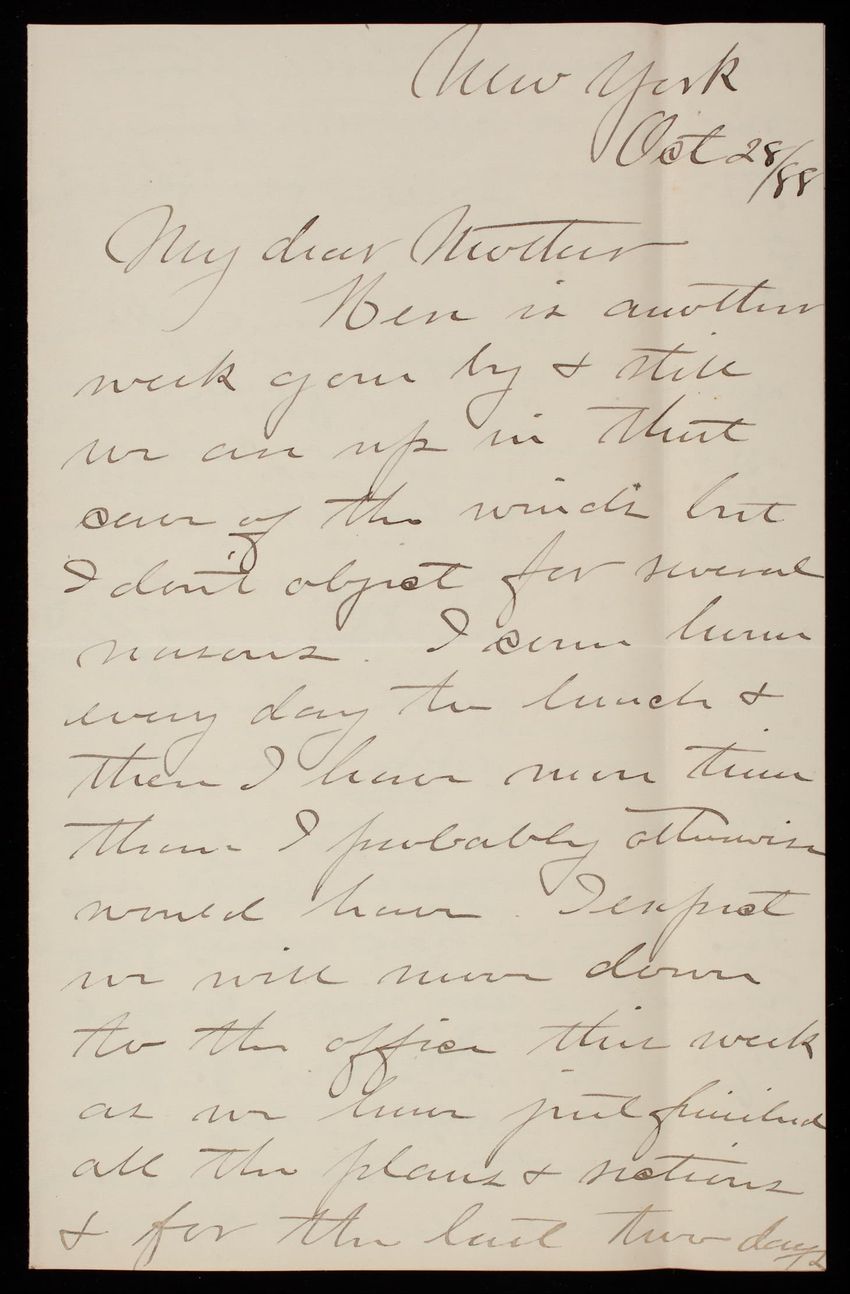 New York
Oct 28/88
My dear Mother
Here is another
week gone by & still
we are up in that
cave of the winds but
I don't object for several
reasons. I come home
every day to lunch &
then I have more time
than I probably otherwise
would have. I expect
we will move down
to the office this week
as we have just finished
all the plans & sections
& for the last two days